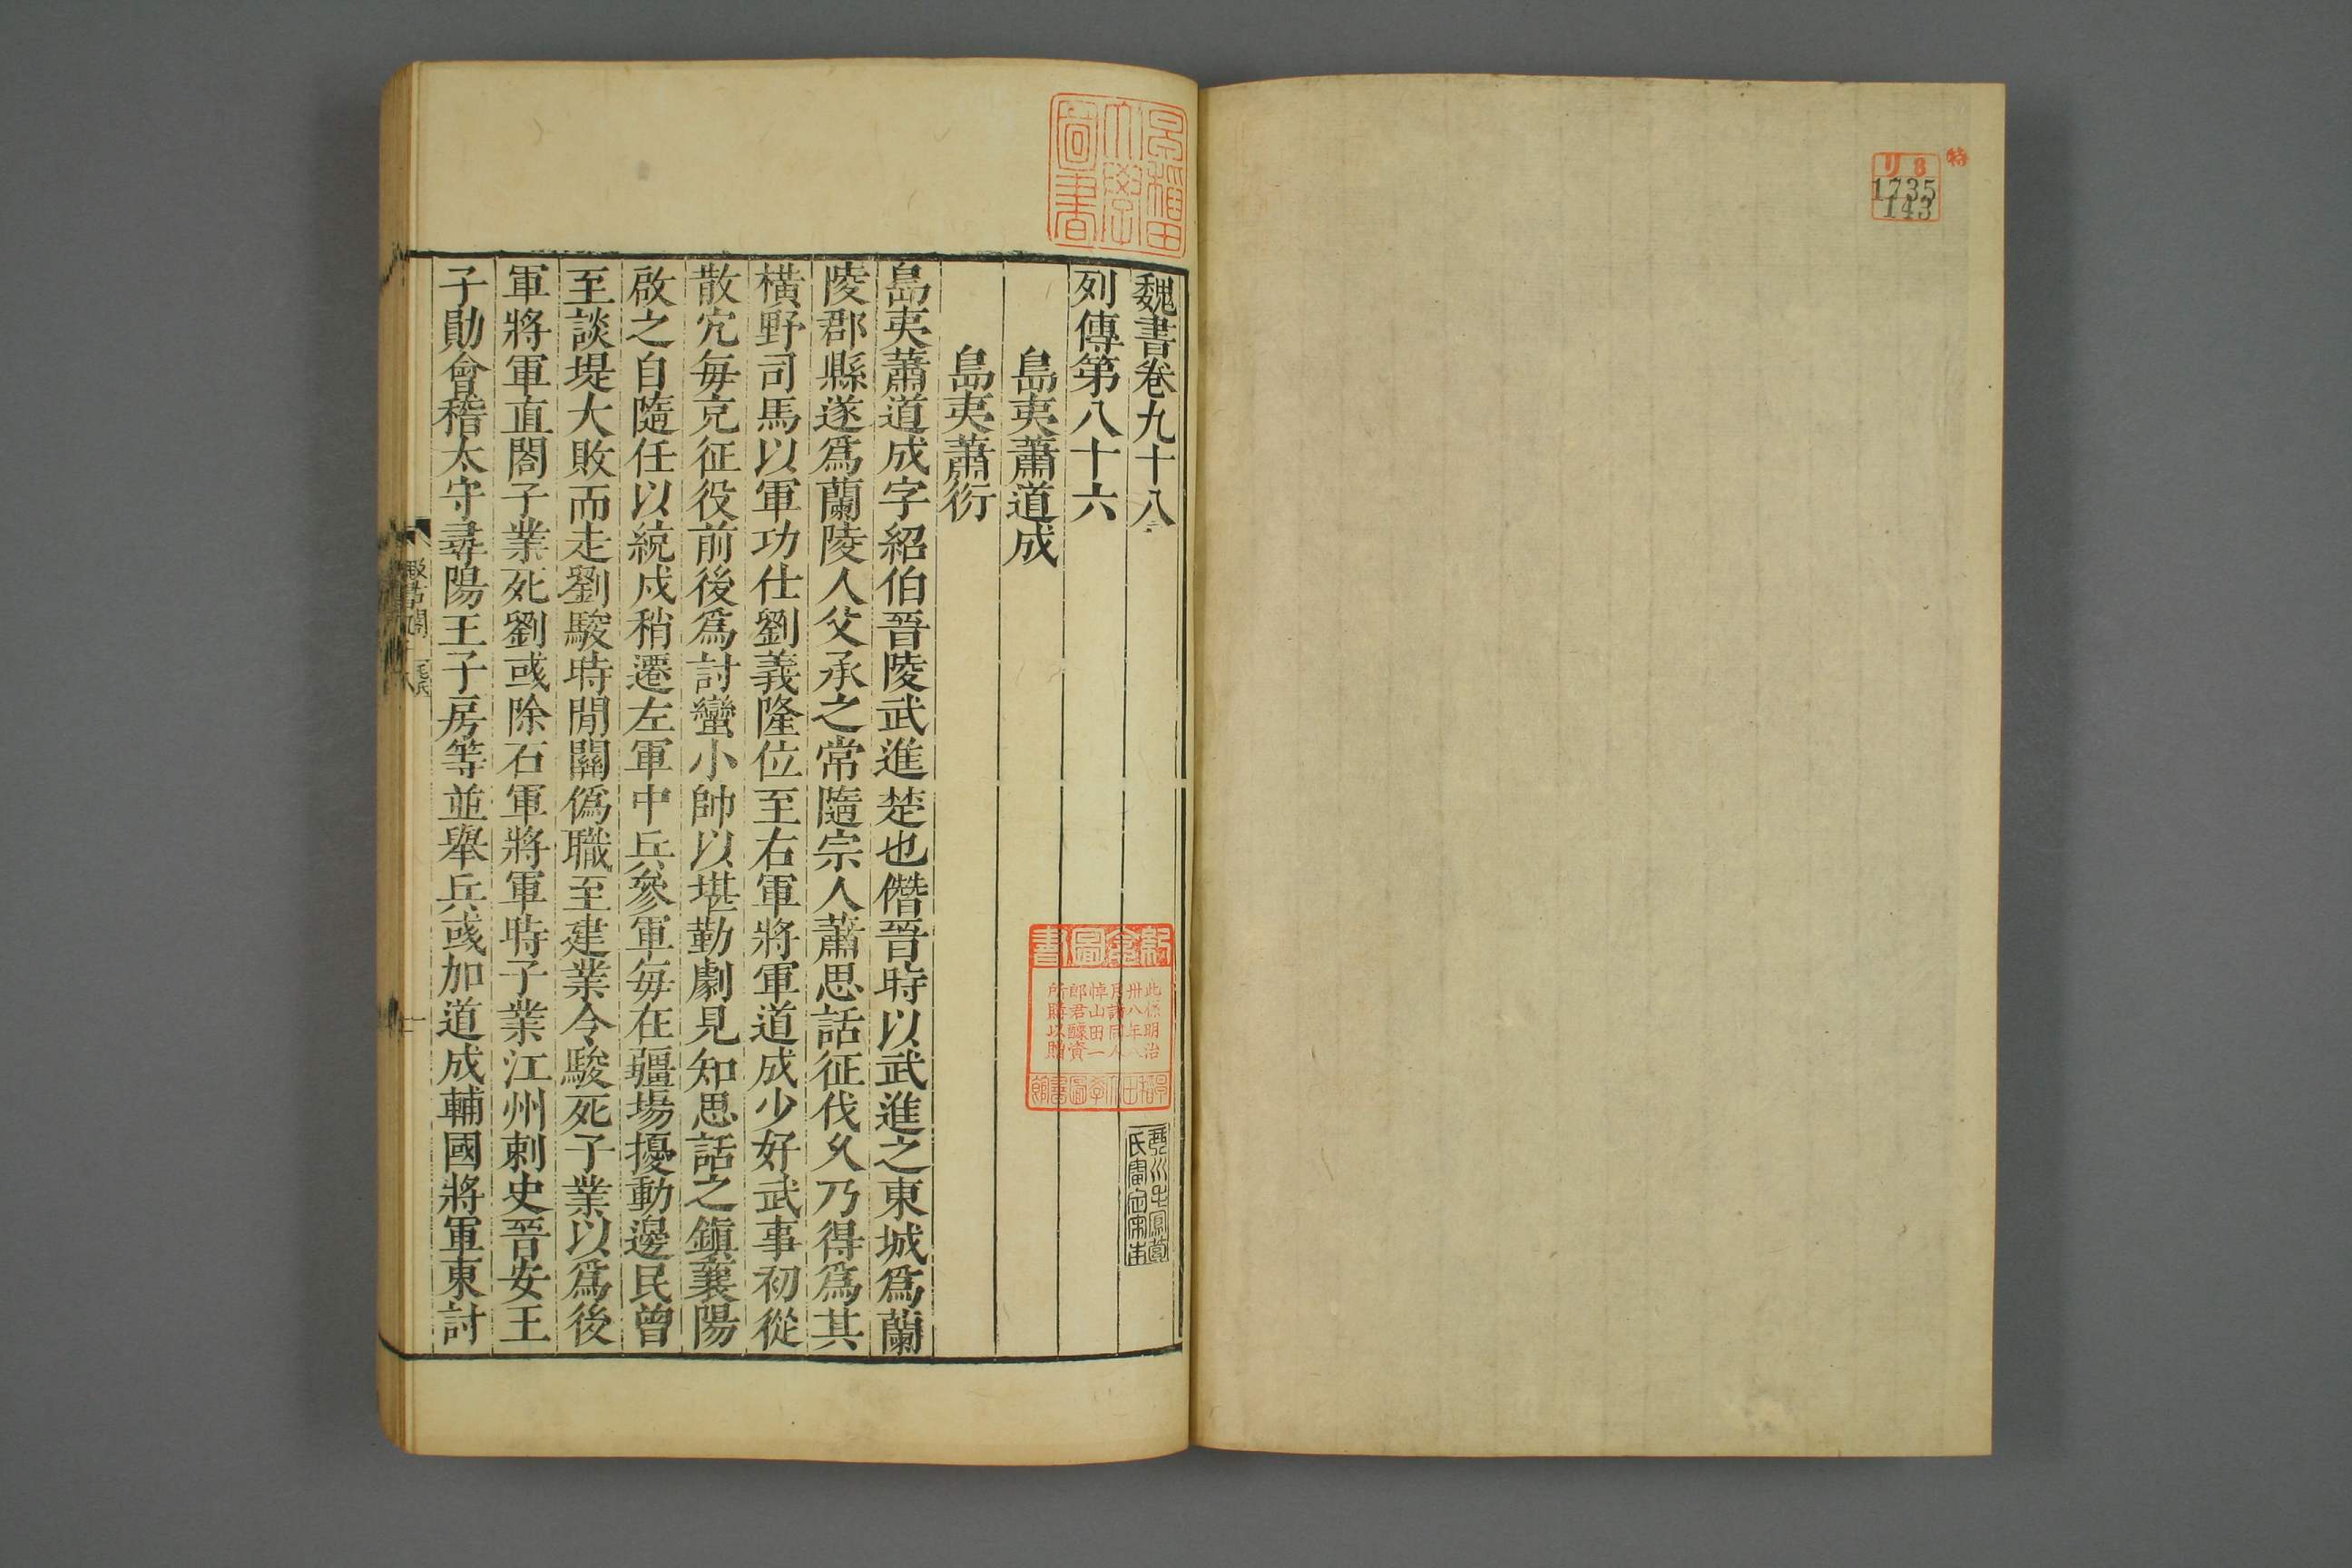 特
リ8
1735
143
魏書卷九十八
列傳第八十六
島夷蕭道成
島夷蕭衍
島夷蕭道成字紹伯晉陵武進楚也僭晉時以武進之東城爲蘭
陵郡縣遂爲蘭陵人父承之常隨宗人蕭思話征伐久乃得爲其
橫野司馬以軍功仕劉義隆位至右軍將軍道成少好武事初從
散宂每充征役前後爲討蠻小帥以堪勤劇見知思話之鎮襄陽
啟之自隨任以統戍稍遷左軍中兵參軍每在疆埸擾動邊民曾
至談堤大敗而走劉駿時閒關僞職至建業令駿死子業以爲後
軍將軍直閤子業死劉彧除右軍將軍時子業江州刺史晉安王
子勛會稽太守尋陽王子房等並舉兵彧加道成輔國將軍東討
早稻田
大學
圖書
新倉圖書
此係明治
卅八年八
月請同人
悼山田一
郎君醵資
所購以贈
早稻田大學圖書館
琴川毛鳳苞
氏審定宋本
毛氏